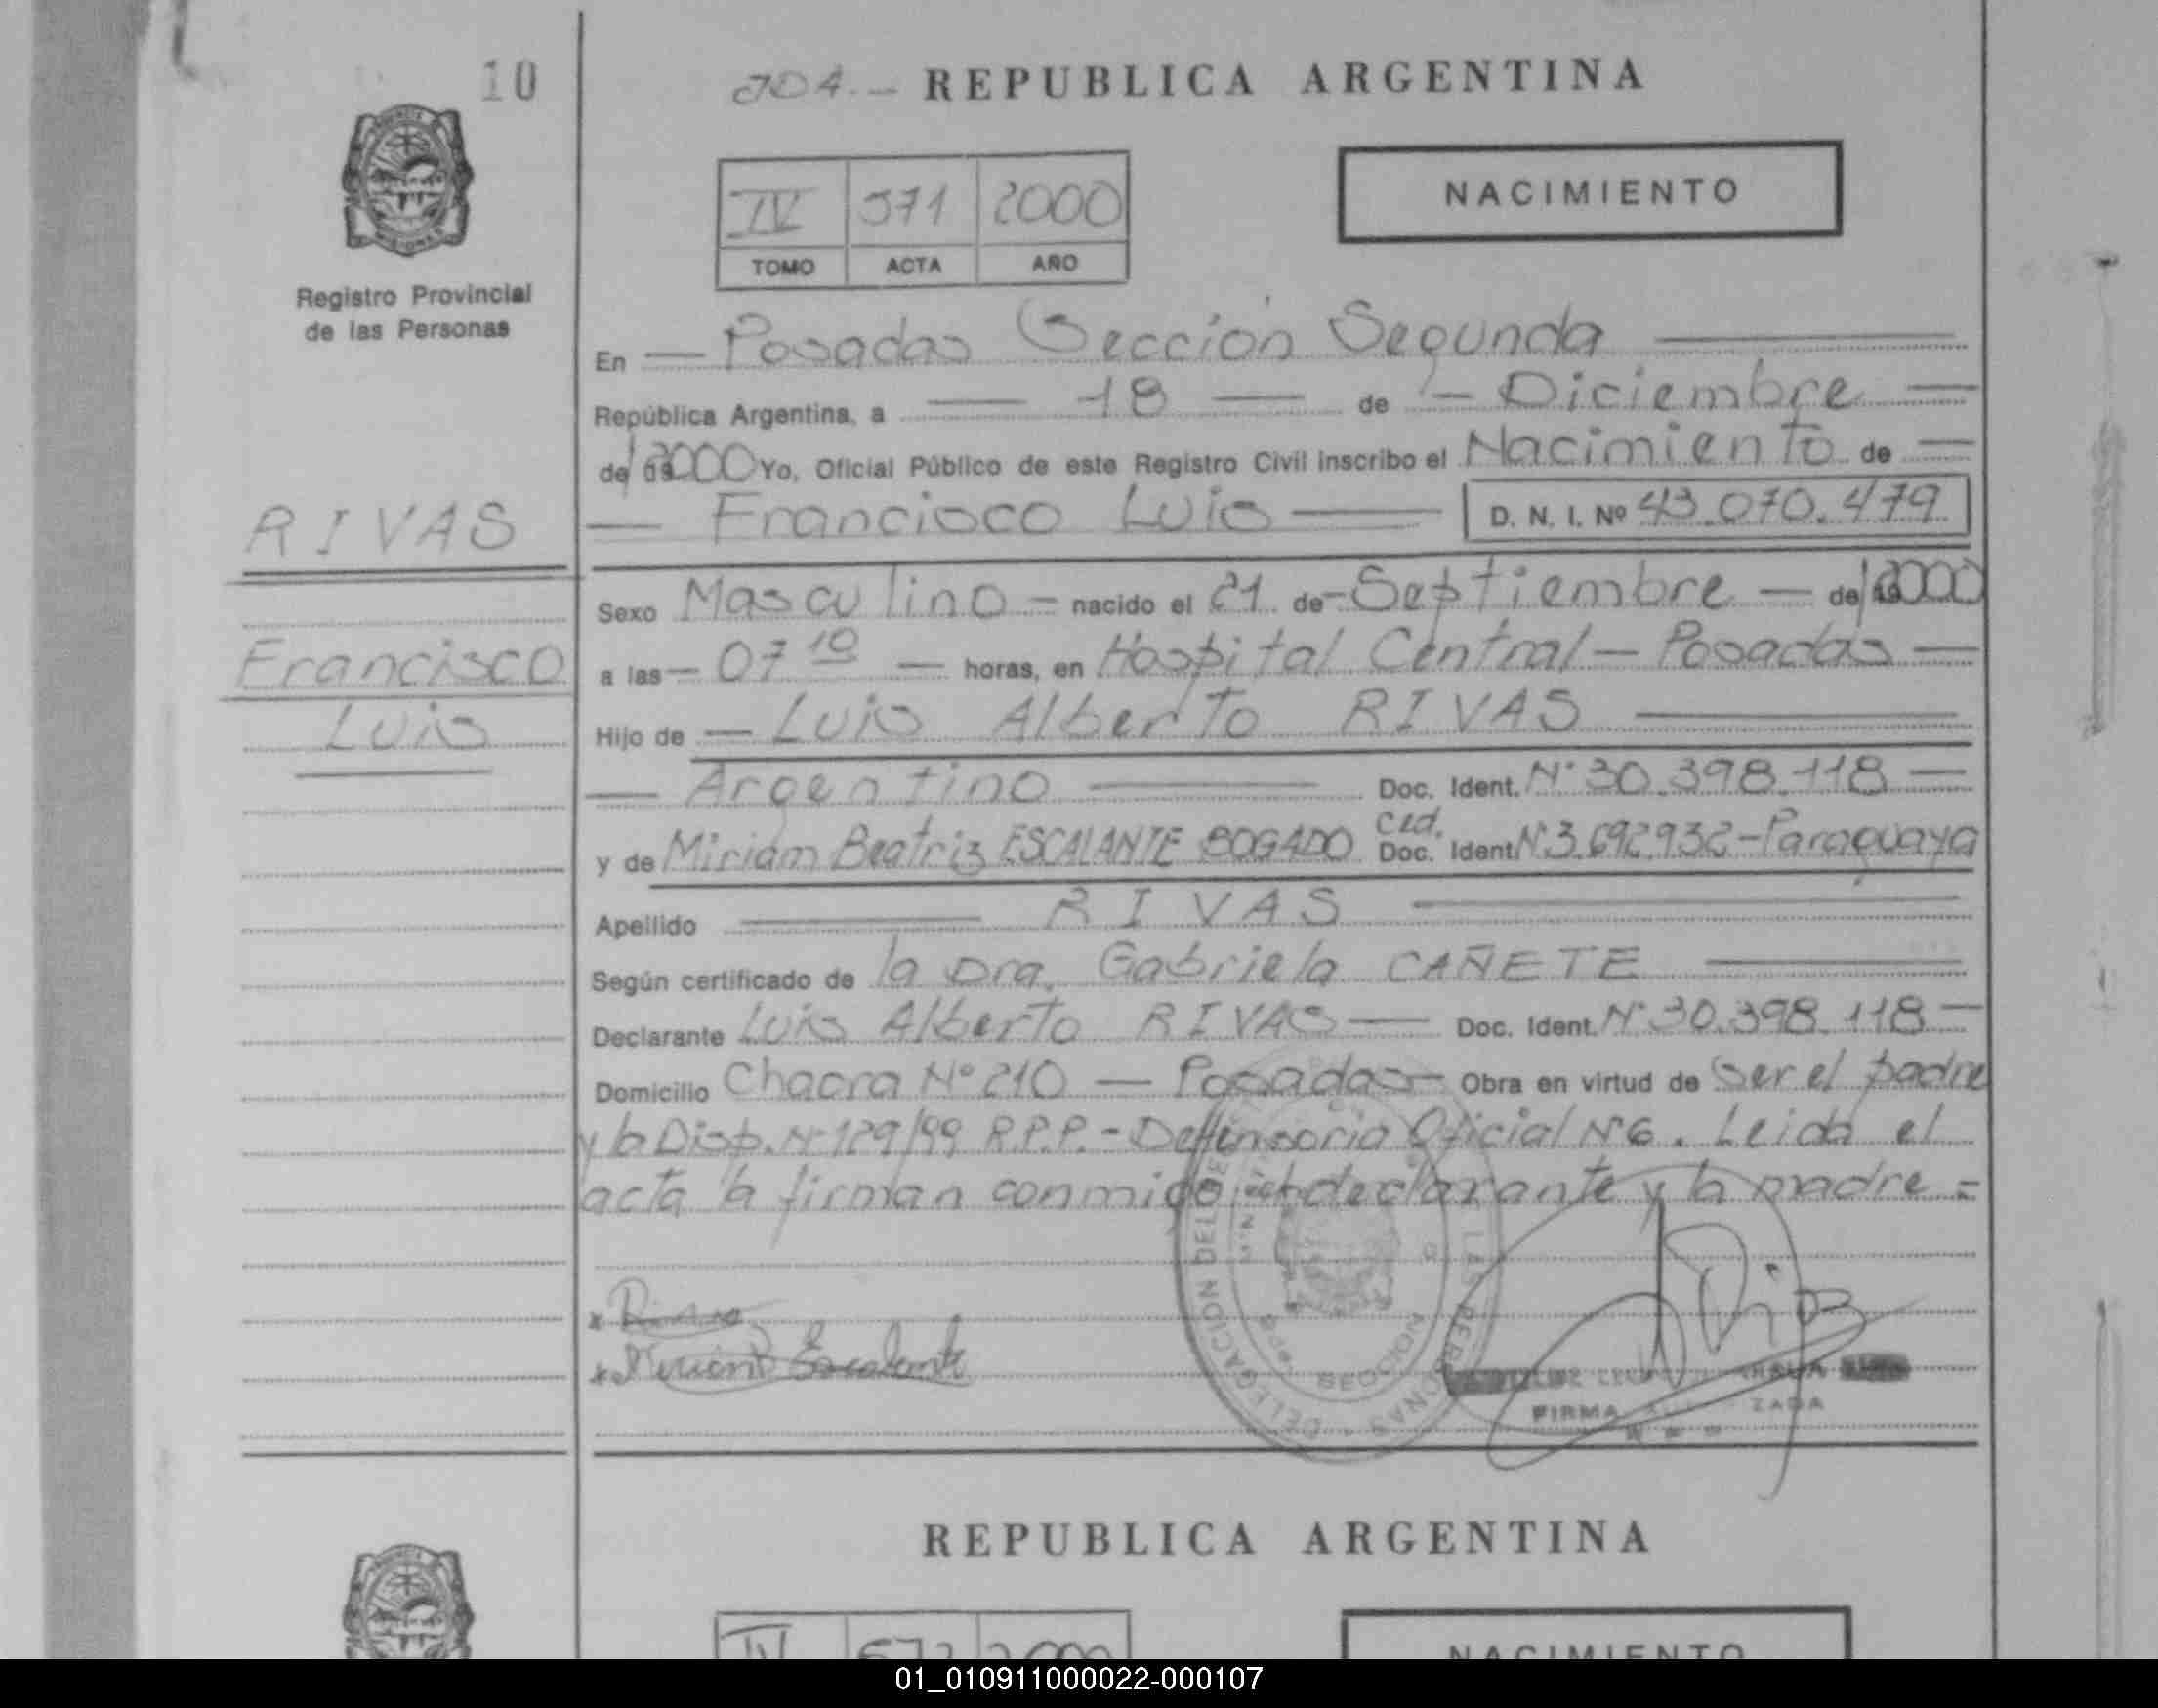 10
204.- REPUBLICA ARGENTINA
IV 571 2000
TOMO ACTA AÑO
NACIMIENTO
Registro Provincial
de las Personas
En — Posadas Sección Segunda —
República Argentina, a — 18 — de — Diciembre —
de 2000 Yo, Oficial Público de este Registro Civil inscribo el Nacimiento de —
RIVAS — Francisco Luis — D. N. I. Nº 43.070.479
Sexo Masculino — nacido el 21 de — Septiembre — de 2000
Francisco a las — 07 10 — horas, en Hospital Central — Posadas —
Luis Hijo de — Luis Alberto RIVAS —
— Argentino — Doc. Ident. Nº 30.398.118 —
y de Miriam Beatriz ESCALANTE BOGADO Ced. Doc. Ident Nº 3.692.932 - Paraguaya
Apellido — RIVAS —
Según certificado de la Dra. Gabriela CAÑETE —
Declarante Luis Alberto RIVAS — Doc. Ident. Nº 30.398.118 —
Domicilio Chacra Nº 210 — Posadas — Obra en virtud de ser el padre
y la Disp. Nº 129/99 R.P.P. - Deffensoria Oficial Nº 6. Leida el
acta la firman conmigo el declarante y la madre =
x Rivas
x Miriam Escalante
DELEGACION DEL LAS PERSONAS
FIRMA ZADA
REPUBLICA ARGENTINA
IV 572 2000
NACIMIENTO
01_010911000022-000107